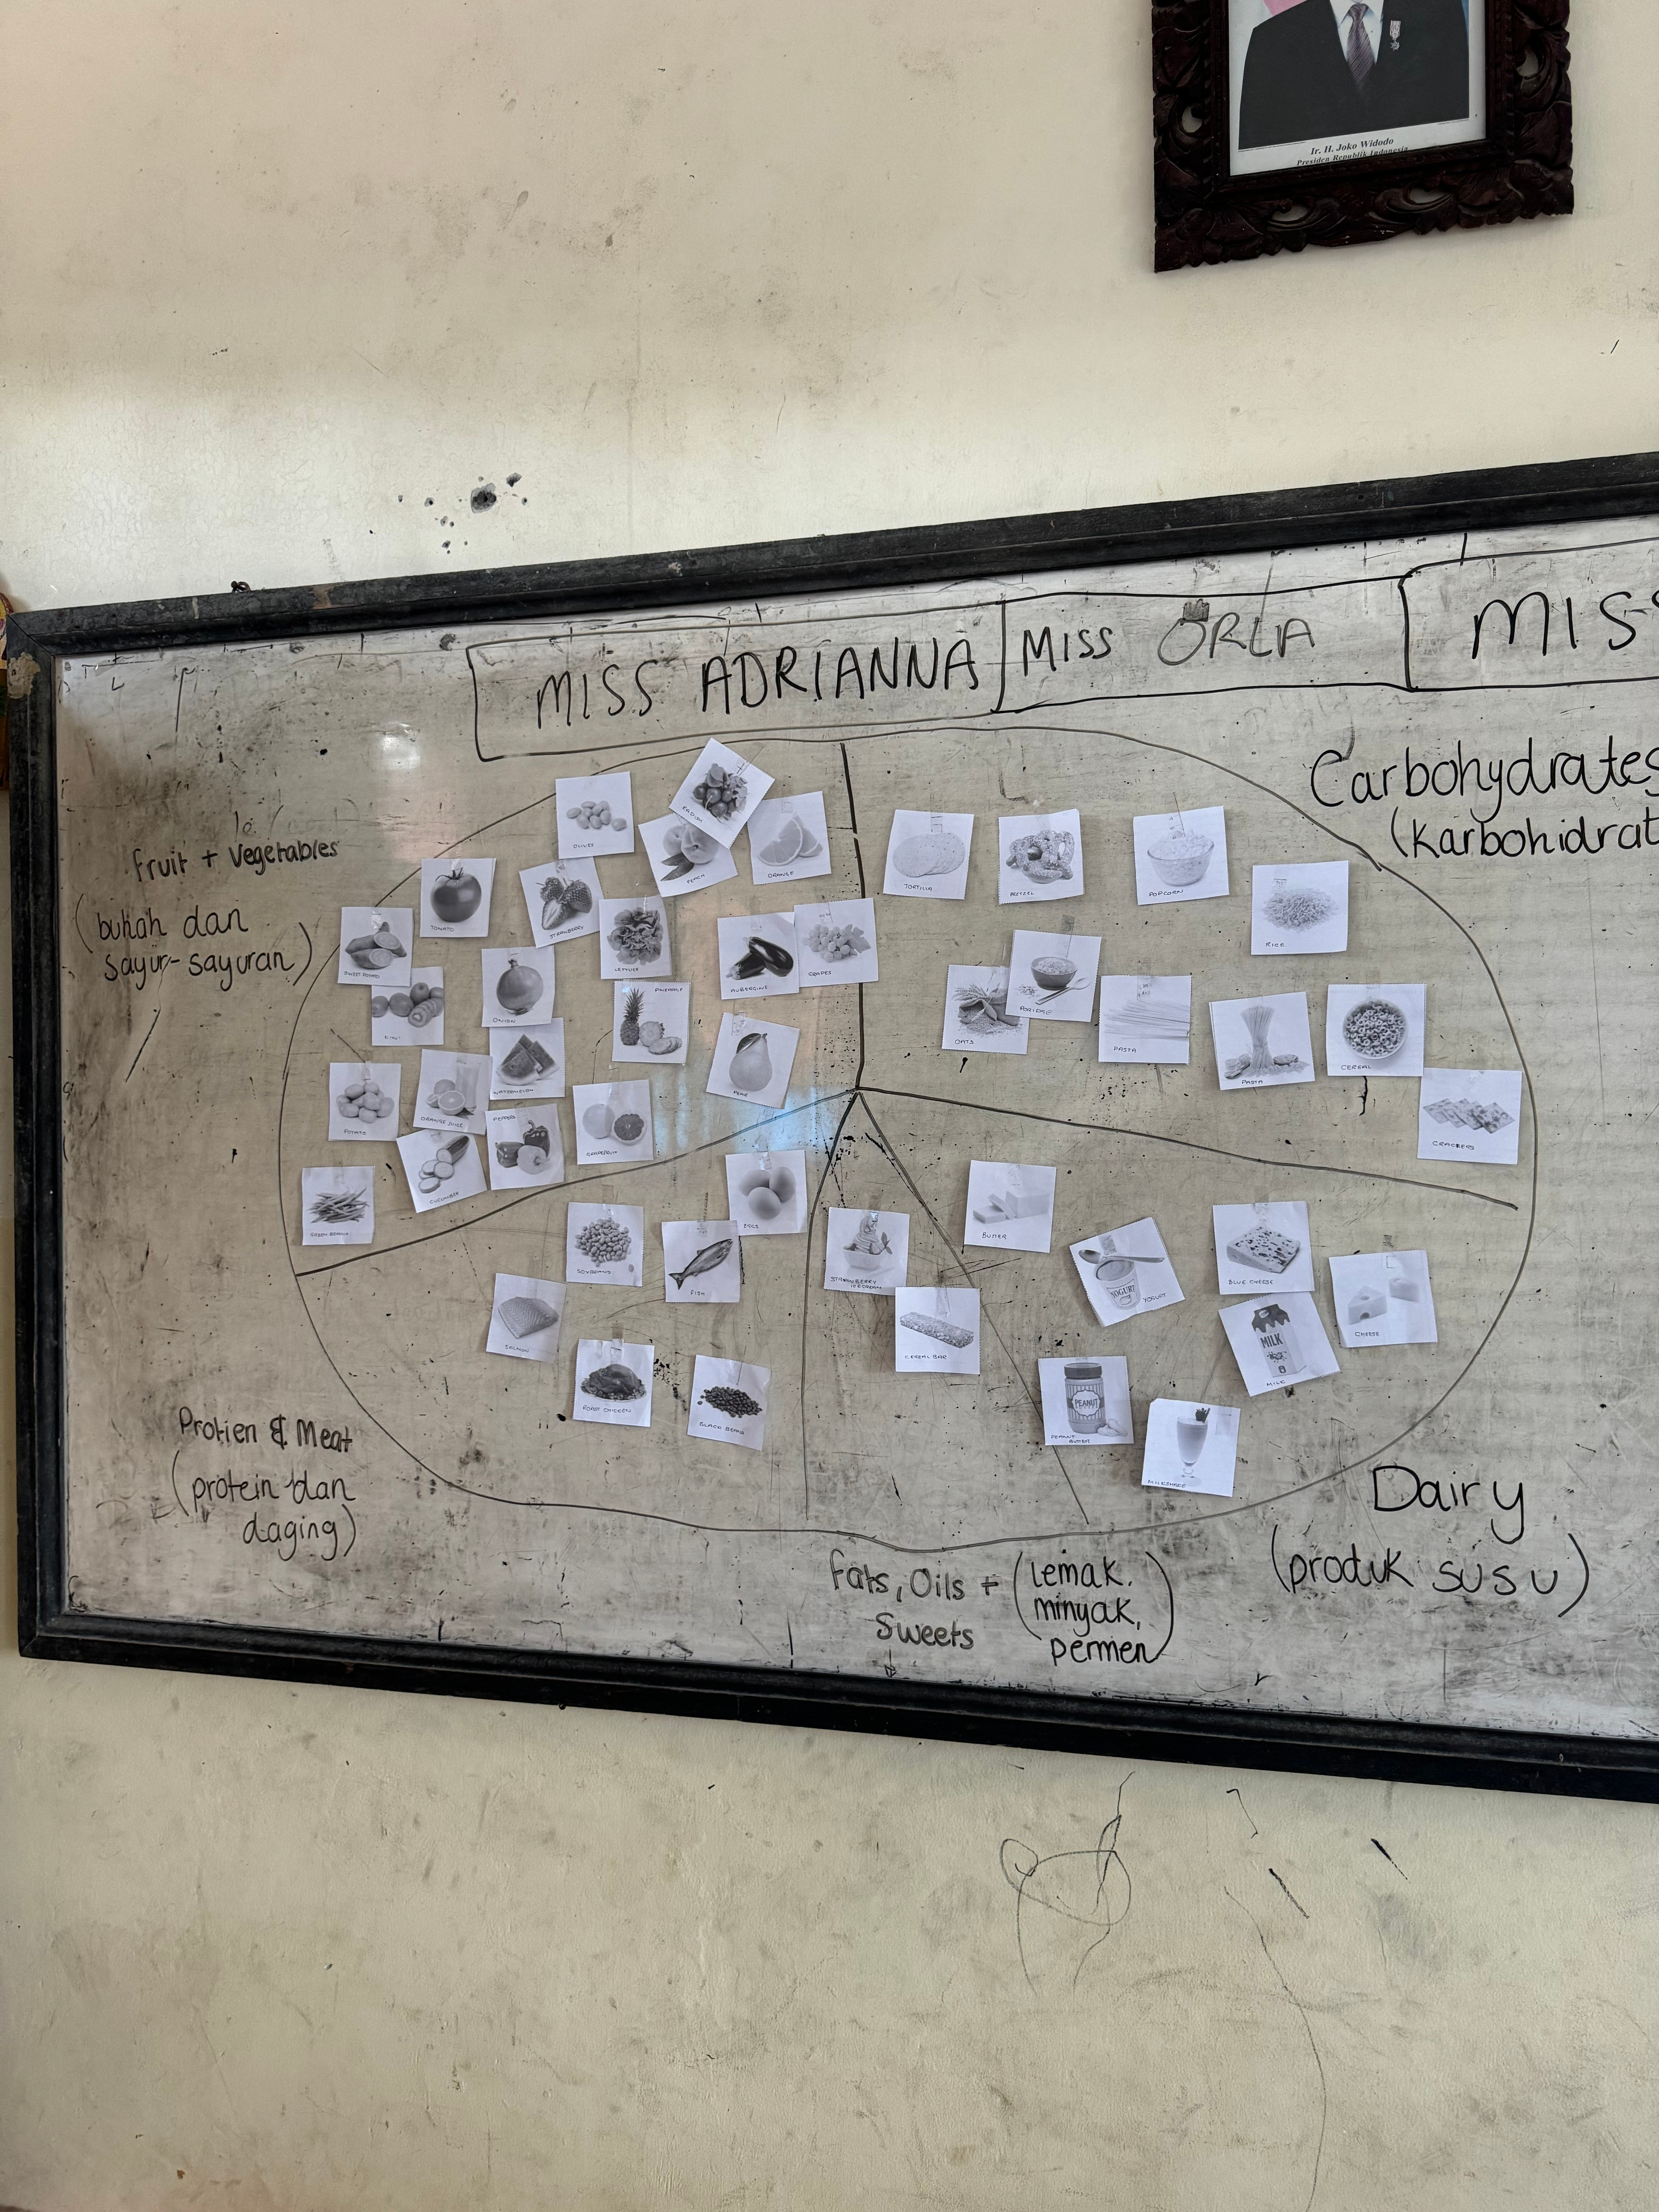 Ir. H. Joko Widodo
Presiden Republik Indonesia
MISS ADRIANNA
MISS ORLA
MISS
Carbohydrates
(Karbohidrat
fruit + Vegetables
(buhah dan
sayur-sayuran)
OLIVES
RADISH
PEACH
ORANGE
TOMATO
STRAWBERRY
LETTUCE
AUBERGINE
GRAPES
SWEET POTATO
KIWI
ONION
PINEAPPLE
WATERMELON
PEAR
POTATO
ORANGE JUICE
PEPPERS
GRAPEFRUIT
CUCUMBER
GREEN BEANS
TORTILLA
PRETZEL
POPCORN
RICE
OATS
PORIDGE
PASTA
PASTA
CEREAL
CRACKERS
EGGS
SOYBEANS
FISH
SALMON
ROAST CHICKEN
BLACK BEANS
STRAWBERRY
ICECREAM
CEREAL BAR
BUTTER
YOGURT
YOGURT
BLUE CHEESE
CHEESE
MILK
MILK
PEANUT
PEANUT
BUTTER
MILKSHAKE
Protien & Meat
(protein dan
daging)
Fats, Oils +
Sweets
(lemak,
minyak,
permen)
Dairy
(produk susu)